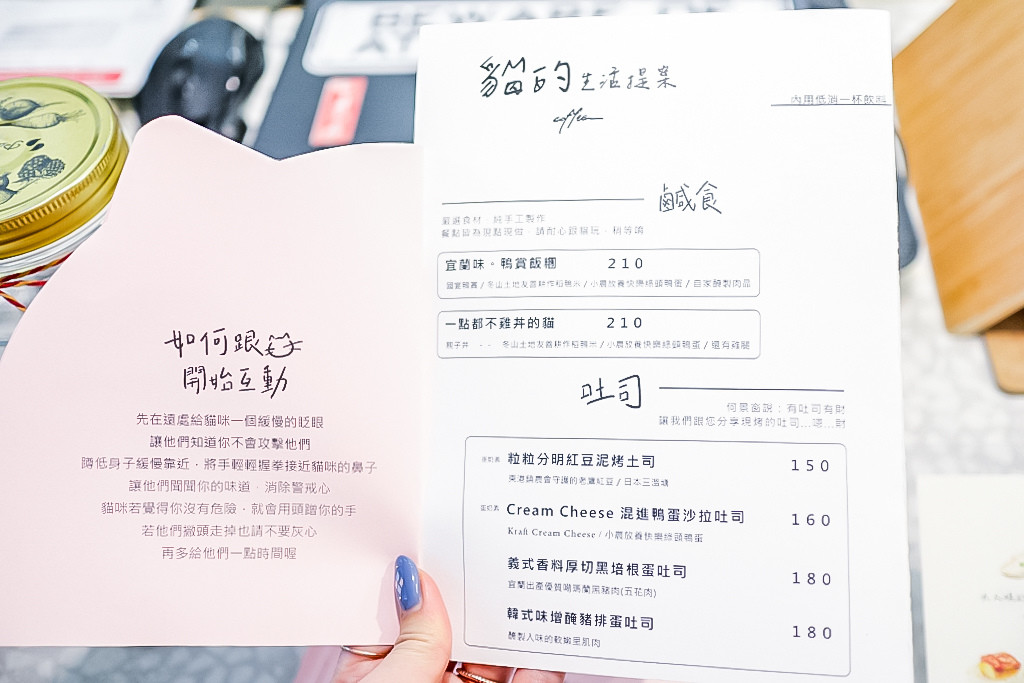 如何跟
開始互動
先在遠處給貓咪一個緩慢的眨眼
讓他們知道你不會攻擊他們
蹲低身子緩慢靠近，將手輕輕握拳接近貓咪的鼻子
讓他們聞聞你的味道，消除警戒心
貓咪若覺得你沒有危險，就會用頭蹭你的手
若他們撇頭走掉也請不要灰心
再多給他們一點時間喔
貓的生活提案
coffean
內用低消一杯飲料
鹹食
嚴選食材．純手工製作
餐點皆為現點現做．請耐心跟貓玩．稍等唷
宜蘭味。鴨賞飯糰 210
冬山土地友善耕作稻鴨米 / 小農放養快樂綠頭鴨蛋 / 自家醃製肉品
一點都不雞丼的貓 210
親子丼 -- 冬山土地友善耕作稻鴨米 / 小農放養快樂綠頭鴨蛋 / 還有雞腿
吐司
何景窗說：有吐司有財
讓我們跟您分享現烤的吐司...嗯...財
蛋奶素 粒粒分明紅豆泥烤土司 150
東港鎮農會守護的老鷹紅豆 / 日本三溫糖
蛋奶素 Cream Cheese 混進鴨蛋沙拉吐司 160
Kraft Cream Cheese / 小農放養快樂綠頭鴨蛋
義式香料厚切黑培根蛋吐司 180
宜蘭出產優質噶瑪蘭黑豬肉(五花肉)
韓式味增醃豬排蛋吐司 180
醃製入味的軟嫩里肌肉